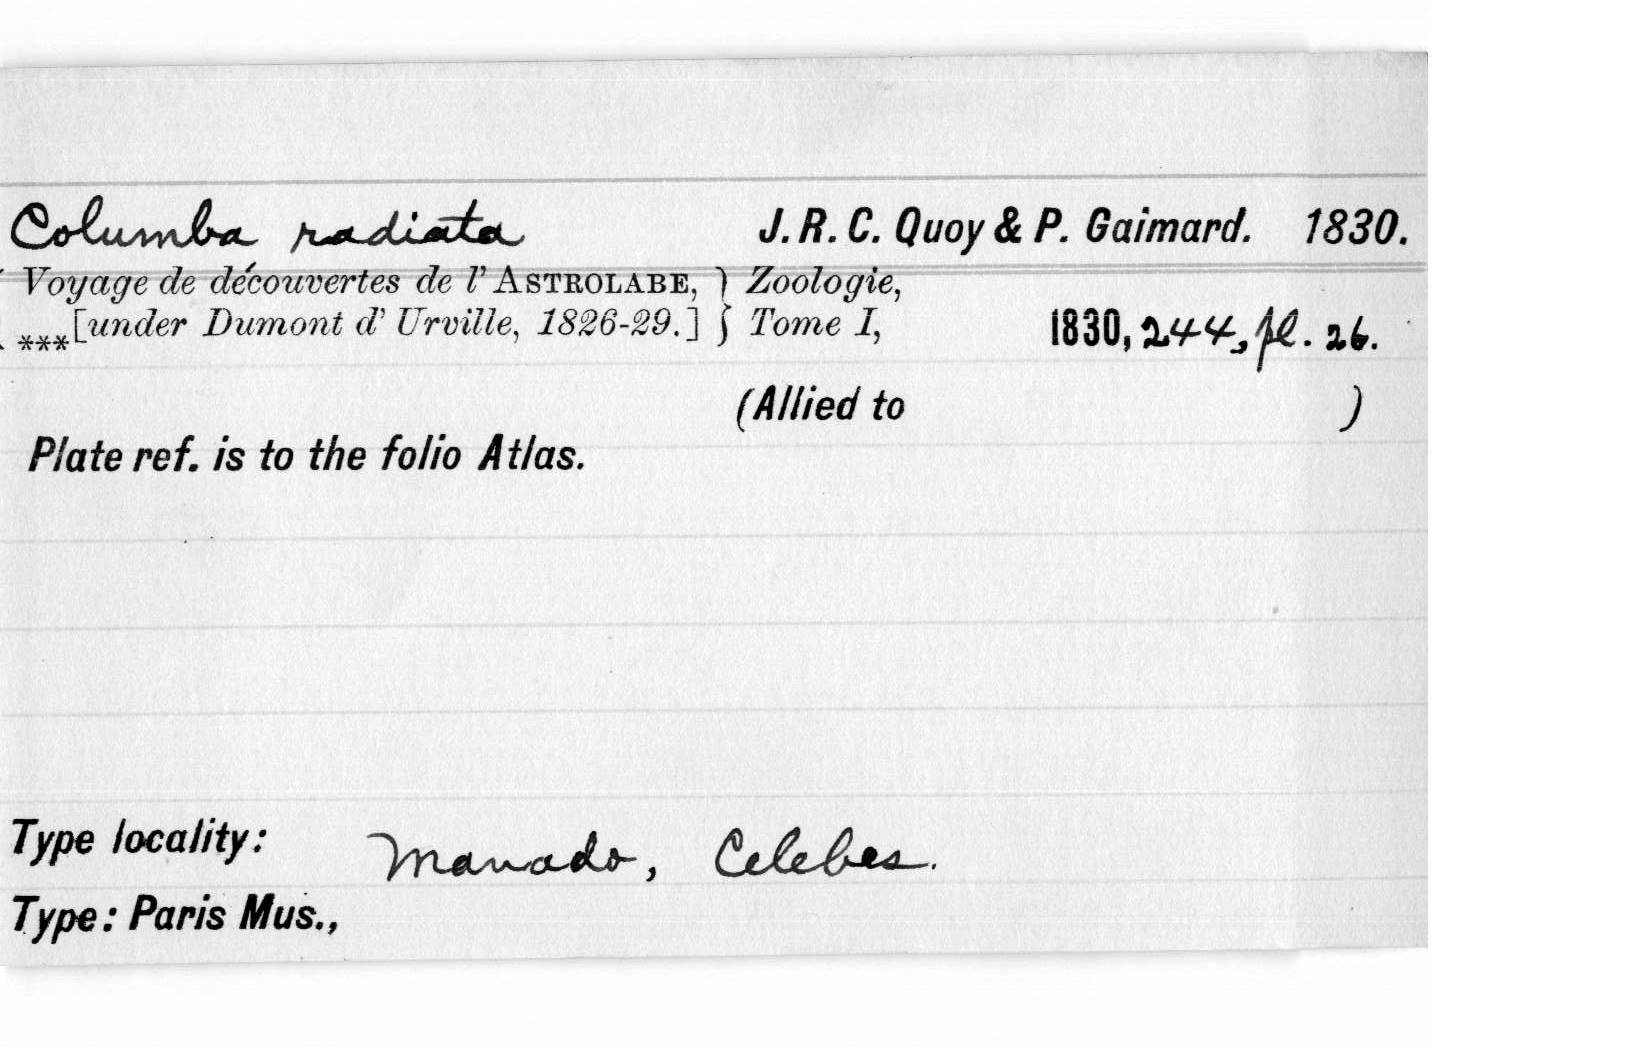 Columba radiata J. R. C. Quoy & P. Gaimard. 1830.
Voyage de découvertes de l' ASTROLABE, } Zoologie,
***[under Dumont d' Urville, 1826-29.] } Tome I, 1830, 244, pl. 26.
(Allied to )
Plate ref. is to the folio Atlas.
Type locality: Manado, Celebes.
Type: Paris Mus.,